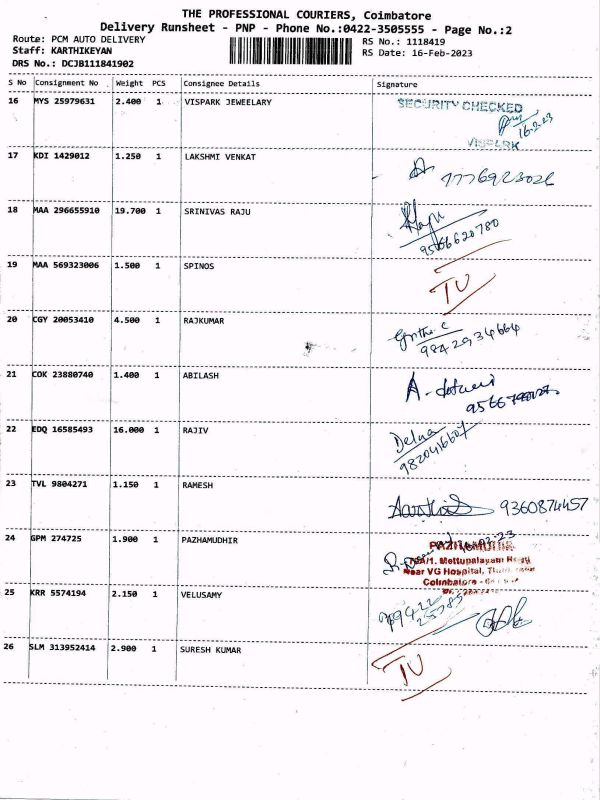 THE PROFESSIONAL COURIERS, Coimbatore
Delivery Runsheet - PNP - Phone No.:0422-3505555 - Page No.:2
Route: PCM AUTO DELIVERY
RS No.: 1118419
Staff: KARTHIKEYAN
RS Date: 16-Feb-2023
DRS No.: DCJB111841902
S No Consignment No Weight PCS Consignee Details Signature
16 MYS 25979631 2.400 1 VISPARK JEWEELARY
SECURITY CHECKED
16.2.23
VISPARK
17 KDI 1429012 1.250 1 LAKSHMI VENKAT
18 MAA 296655910 19.700 1 SRINIVAS RAJU
9566620780
19 MAA 569323006 1.500 1 SPINOS
20 CGY 20053410 4.500 1 RAJKUMAR
9842934664
21 COK 23880740 1.400 1 ABILASH
22 EDQ 16585493 16.000 1 RAJIV
23 TVL 9804271 1.150 1 RAMESH
9360874457
24 GPM 274725 1.900 1 PAZHAMUDHIR
Mettupalayam
Near VG Hospital,
Coimbatore
25 KRR 5574194 2.150 1 VELUSAMY
26 SLM 313952414 2.900 1 SURESH KUMAR